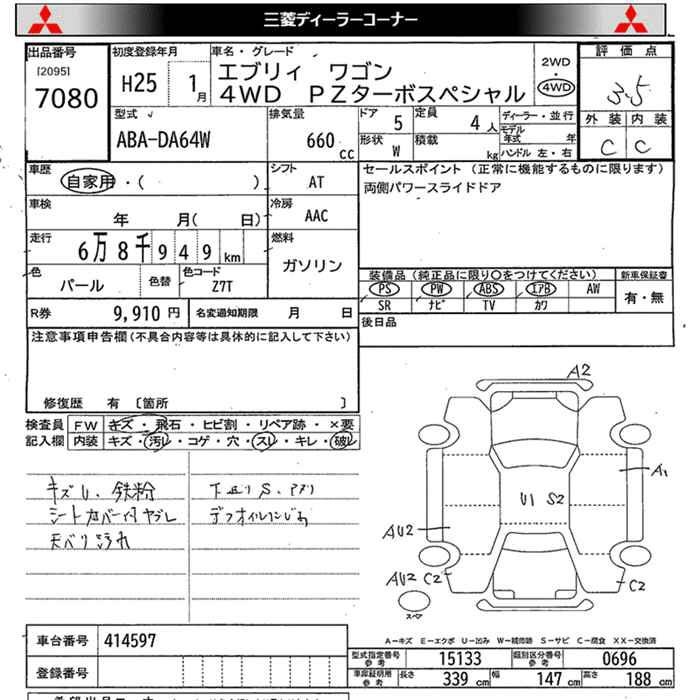 三菱ディーラーコーナー
出品番号 初度登録年月 車名・グレード 評価点
120951
7080
H25 1月
エブリィ ワゴン
4WD PZターボスペシャル
2WD
・
4WD
3.5
外装 内装
C C
型式 排気量 ドア 定員 ディーラー・並行
ABA-DA64W 660cc 5 4人
モデル年式 年
形状 積載 ハンドル 左・右
W kg
車歴 シフト セールスポイント (正常に機能するものに限ります)
自家用・( ) AT 両側パワースライドドア
車検 冷房
年 月( 日) AAC
走行 燃料
6万8千949km ガソリン
色 色替 色コード
パール Z7T
装備品 (純正品に限り○をつけてください) 新車保証書
PS PW ABS エアB AW 有・無
SR ナビ TV カワ
R券 9,910円 名変通知期限 月 日 後日品
注意事項申告欄(不具合内容等は具体的に記入して下さい)
修復歴 有 〔箇所 〕
検査員 FW キズ・飛石・ヒビ割・リペア跡・×要
記入欄 内装 キズ・汚レ・コゲ・穴・スレ・キレ・破レ
キズU、鉄粉
シートカバー付ヤブレ
天バリ汚れ
下廻りS、アブリ
デフオイルにじみ
A2
A1
U1 S2
AU2
AU2 C2
C2
スペア
A-キズ E-エクボ U-凹み W-補修跡 S-サビ C-腐食 XX-交換済
車台番号 414597
登録番号
型式指定番号 参考 15133 類別区分番号 参考 0696
車庫証明用 参考 長さ 339cm 幅 147cm 高さ 188cm